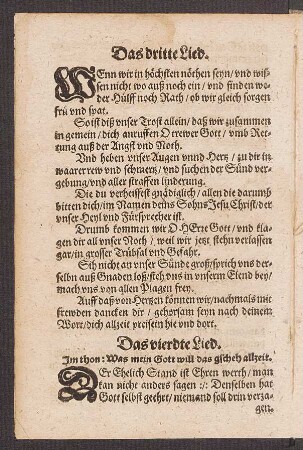 Das dritte Lied.
WEnn wir in höchsten nöthen seyn / vnd wis-
sen nicht wo auß noch ein / vnd finden we-
der Hülff noch Rath / ob wir gleich sorgen
frü vnd spat.
So ist diß vnser Trost allein / daß wir zusammen
in gemein / dich anruffen O trewer Gott / vmb Ret-
tung auß der Angst vnd Noth.
Vnd heben vnser Augen vnnd Hertz / zu dir in
waarer rew vnd schmertz / vnd suchen der Sünd ver-
gebung / vnd aller straffen linderung.
Die du verheissest gnädiglich / allen die darumb
bitten dich / im Namen deins Sohns Jesu Christ / der
vnser Heyl vnd Fürsprecher ist.
Drumb kommen wir O HErre Gott / vnd kla-
gen dir all vnser Noth / weil wir jetz stehn verlassen
gar / in grosser Trübsal vnd Gefahr.
Sih nicht an vnser Sünde groß / sprich vns der-
selbn auß Gnaden loß / steh vns in vnserm Elend bey /
mach vns von allen Plagen frey.
Auff daß von Hertzen können wir / nachmals mit
frewden dancken dir / gehorsam seyn nach deinem
Wort / dich allzeit preisen hie vnd dort.
Das vierdte Lied.
Im thon: Was mein Gott will das gscheh allzeit.
DEr Ehelich Stand ist Ehren werth / man
kan nicht anders sagen :/: Denselben hat
Gott selbst geehrt / niemand soll drin verza-
gen.